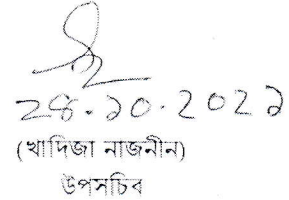 ২৪.১০.২০২১
(খাদিজা নাজনীন)
উপসচিব